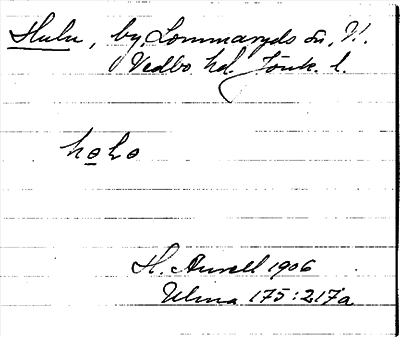 Hulu, by, Lommaryds sn, N.
Vedbo hd. Jönk. l.
hѳLѳ
H. Aurell 1906
Ulma 175:217a